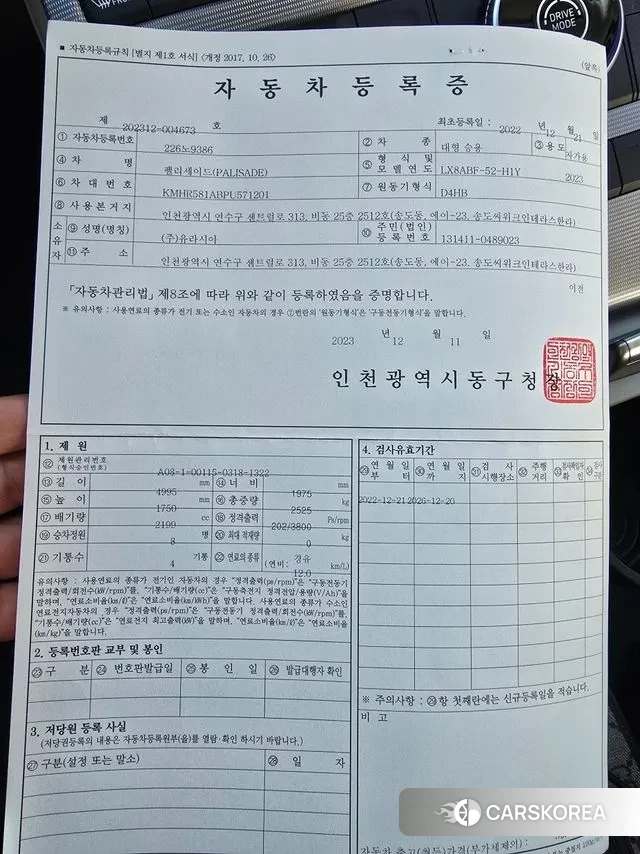 FRONT
DRIVE
MODE
■ 자동차등록규칙 [별지 제1호 서식] <개정 2017. 10. 26>
(앞쪽)
자 동 차 등 록 증
제 202312-004673 호
최초등록일 : 2022 년 12 월 21 일
① 자동차등록번호 226노9386 ② 차 종 대형 승용 ③ 용도 자가용
④ 차 명 팰리세이드(PALISADE) ⑤ 형식 및 모델연도 LX8ABF-52-H1Y 2023
⑥ 차대번호 KMHR581ABPU571201 ⑦ 원동기형식 D4HB
⑧ 사용본거지 인천광역시 연수구 센트럴로 313, 비동 25층 2512호(송도동, 에이-23, 송도씨워크인테라스한라)
소유자 ⑨ 성명(명칭) (주)유라시아 ⑩ 주민(법인)등록번호 131411-0489023
⑪ 주 소 인천광역시 연수구 센트럴로 313, 비동 25층 2512호(송도동, 에이-23, 송도씨워크인테라스한라)
「자동차관리법」 제8조에 따라 위와 같이 등록하였음을 증명합니다.
이전
※ 유의사항 : 사용연료의 종류가 전기 또는 수소인 자동차의 경우 ⑦번란의 '원동기형식'은 '구동전동기형식'을 말합니다.
2023 년 12 월 11 일
인천광역시동구청장
1. 제 원
⑫ 제원관리번호 (형식승인번호) A08-1-00115-0318-1322
⑬ 길 이 4995 mm ⑭ 너 비 1975 mm
⑮ 높 이 1750 mm ⑯ 총중량 2525 kg
⑰ 배기량 2199 cc ⑱ 정격출력 202/3800 Ps/rpm
⑲ 승차정원 8 명 ⑳ 최대적재량 0 kg
㉑ 기통수 4 기통 ㉒ 연료의종류 경유 (연비: 12.0 km/L)
유의사항 : 사용연료의 종류가 전기인 자동차의 경우 "정격출력(ps/rpm)"은 "구동전동기
정격출력/회전수(kW/rpm)"를, "기통수/배기량(cc)"은 "구동축전지 정격전압/용량(V/Ah)"을
말하며, "연료소비율(km/ℓ)"은 "연료소비율(km/kWh)"을 말합니다. 사용연료의 종류가 수소인
연료전지자동차의 경우 "정격출력(ps/rpm)"은 "구동전동기 정격출력/회전수(kW/rpm)"를,
"기통수/배기량(cc)"은 "연료전지 최고출력(kW)"을 말하며, "연료소비율(km/ℓ)"은 "연료소비율
(km/kg)"을 말합니다.
2. 등록번호판 교부 및 봉인
㉓ 구 분 ㉔ 번호판발급일 ㉕ 봉 인 일 ㉖ 발급대행자 확인
3. 저당권 등록 사실
(저당권등록의 내용은 자동차등록원부(을)를 열람·확인 하시기 바랍니다.)
㉗ 구분(설정 또는 말소) ㉘ 일 자
4. 검사유효기간
㉙ 연 월 일 부 터 ㉚ 연 월 일 까 지 ㉛ 검 사 시행장소 ㉜ 주행 거리 ㉝ 검사책임자 확 인
2022-12-21 2026-12-20
※ 주의사항 : ㉙항 첫째란에는 신규등록일을 적습니다.
비 고
자동차 출고(취득)가격(부가세제외) :
CARSKOREA